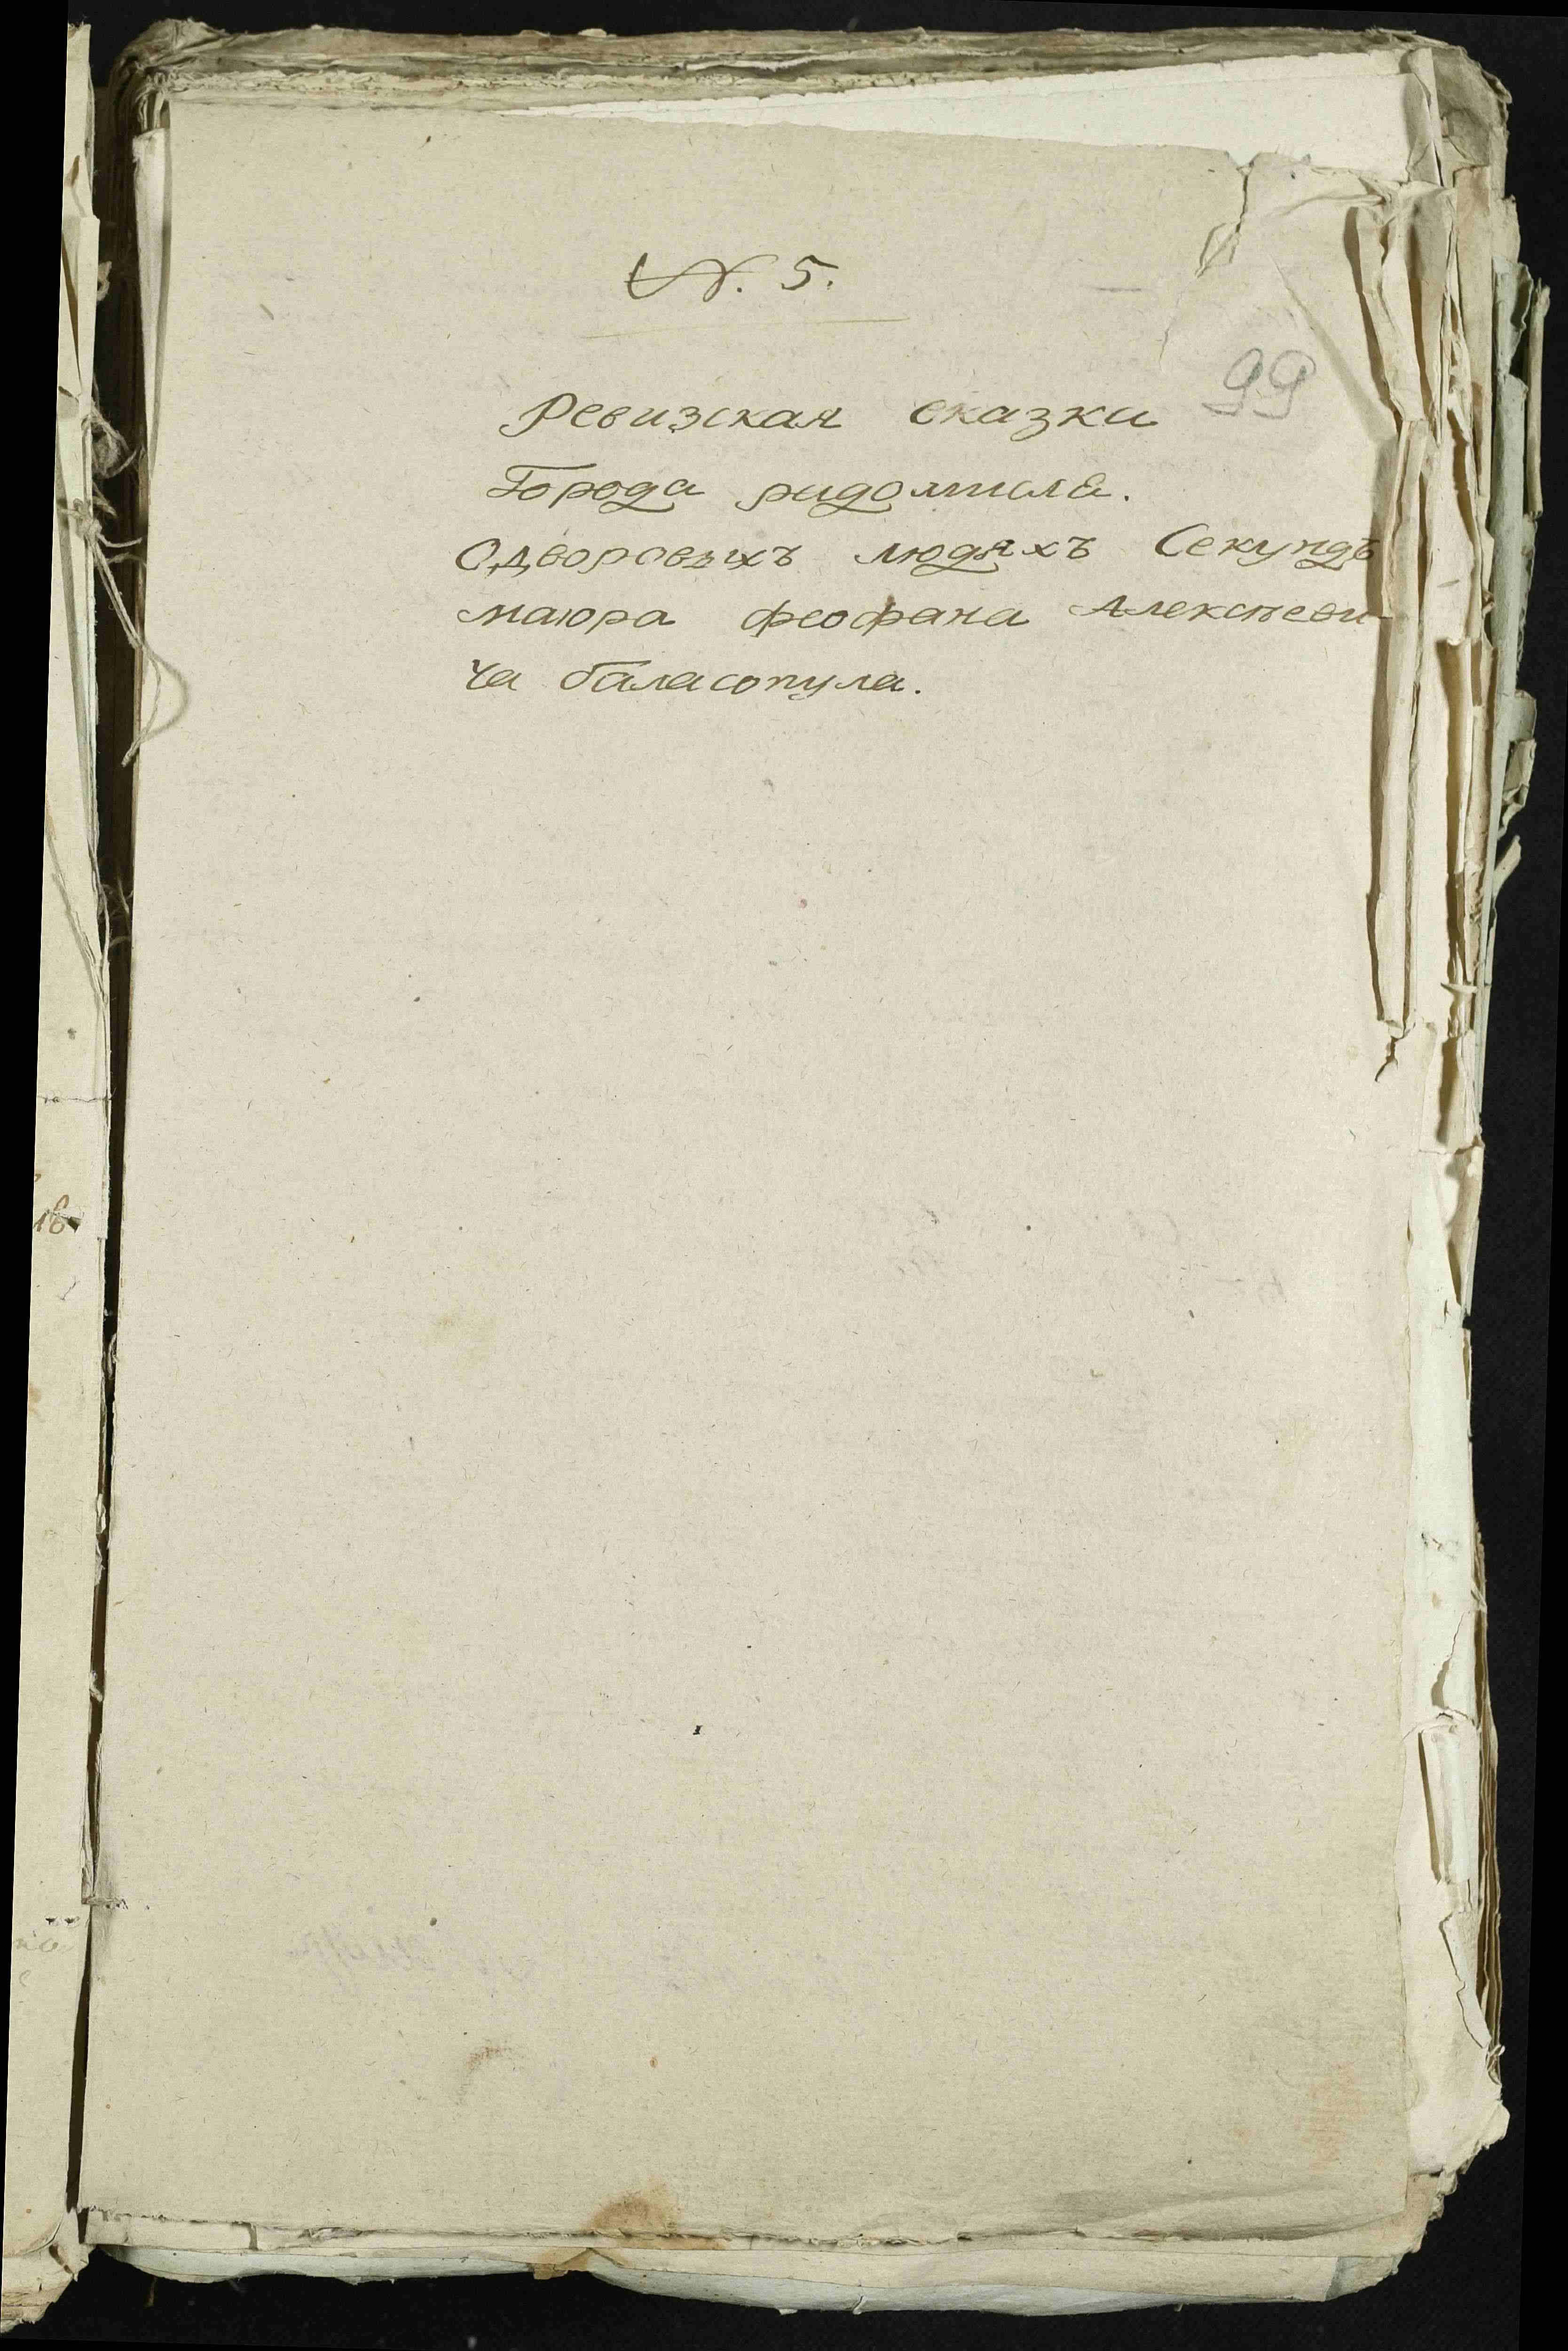 N. 5.
99
Ревизская сказки
Города радомисла.
Одворовыхъ людяхъ Секундъ
маюра феофана Алексѣеви-
ча баласопула.
18